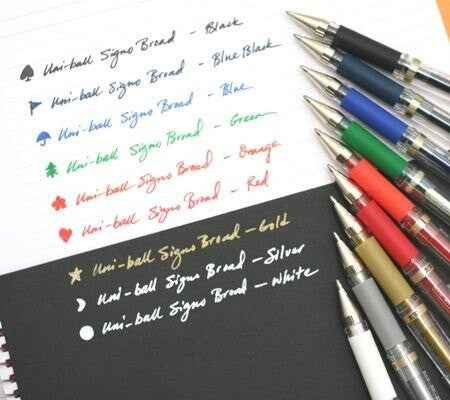 Uni-ball Signo Broad - Black
Uni-ball Signo Broad - Blue Black
Uni-ball Signo Broad - Blue
Uni-ball Signo Broad - Green
Uni-ball Signo Broad - Orange
Uni-ball Signo Broad - Red
Uni-ball Signo Broad - Gold
Uni-ball Signo Broad - Silver
Uni-ball Signo Broad - White